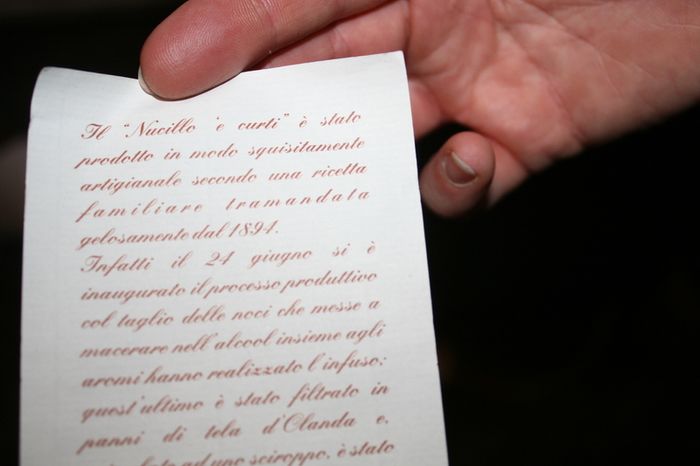 Il "Nucillo 'e curti" è stato
prodotto in modo squisitamente
artigianale secondo una ricetta
familiare tramandata
gelosamente dal 1894.
Infatti il 24 giugno si è
inaugurato il processo produttivo
col taglio delle noci che messe a
macerare nell'alcool insieme agli
aromi hanno realizzato l'infuso;
quest'ultimo è stato filtrato in
panni di tela d'Olanda e,
ad uno sciroppo, è stato